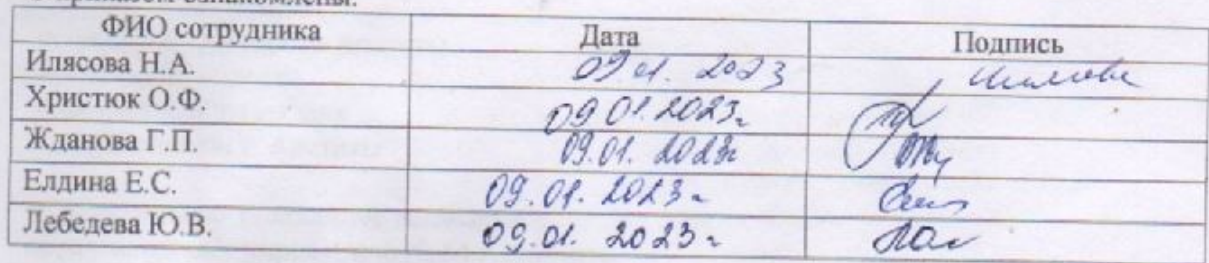 приказом ознакомлены:
ФИО сотрудника Дата Подпись
Илясова Н.А. 09 01. 2023
Христюк О.Ф. 09 01.2023г
Жданова Г.П. 09.01. 2023г
Елдина Е.С. 09.01.2023г
Лебедева Ю.В. 09.01. 2023г